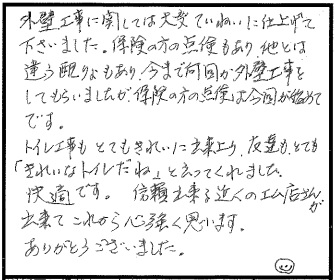 外壁工事に関しては大変ていねいに仕上げて
下さいました。保険の方の点検もあり他とは
違う配りょもあり、今まで何回か外壁工事を
してもらいましたが保険の方の点検は今回が始めて
です。
トイレ工事も とてもきれいに出来上り、友達も、とても
「きれいなトイレだね」と言ってくれました。
快適です。 信頼出来る近くの工ム店さんが
出来て これから心強く思います。
ありがとうございました。